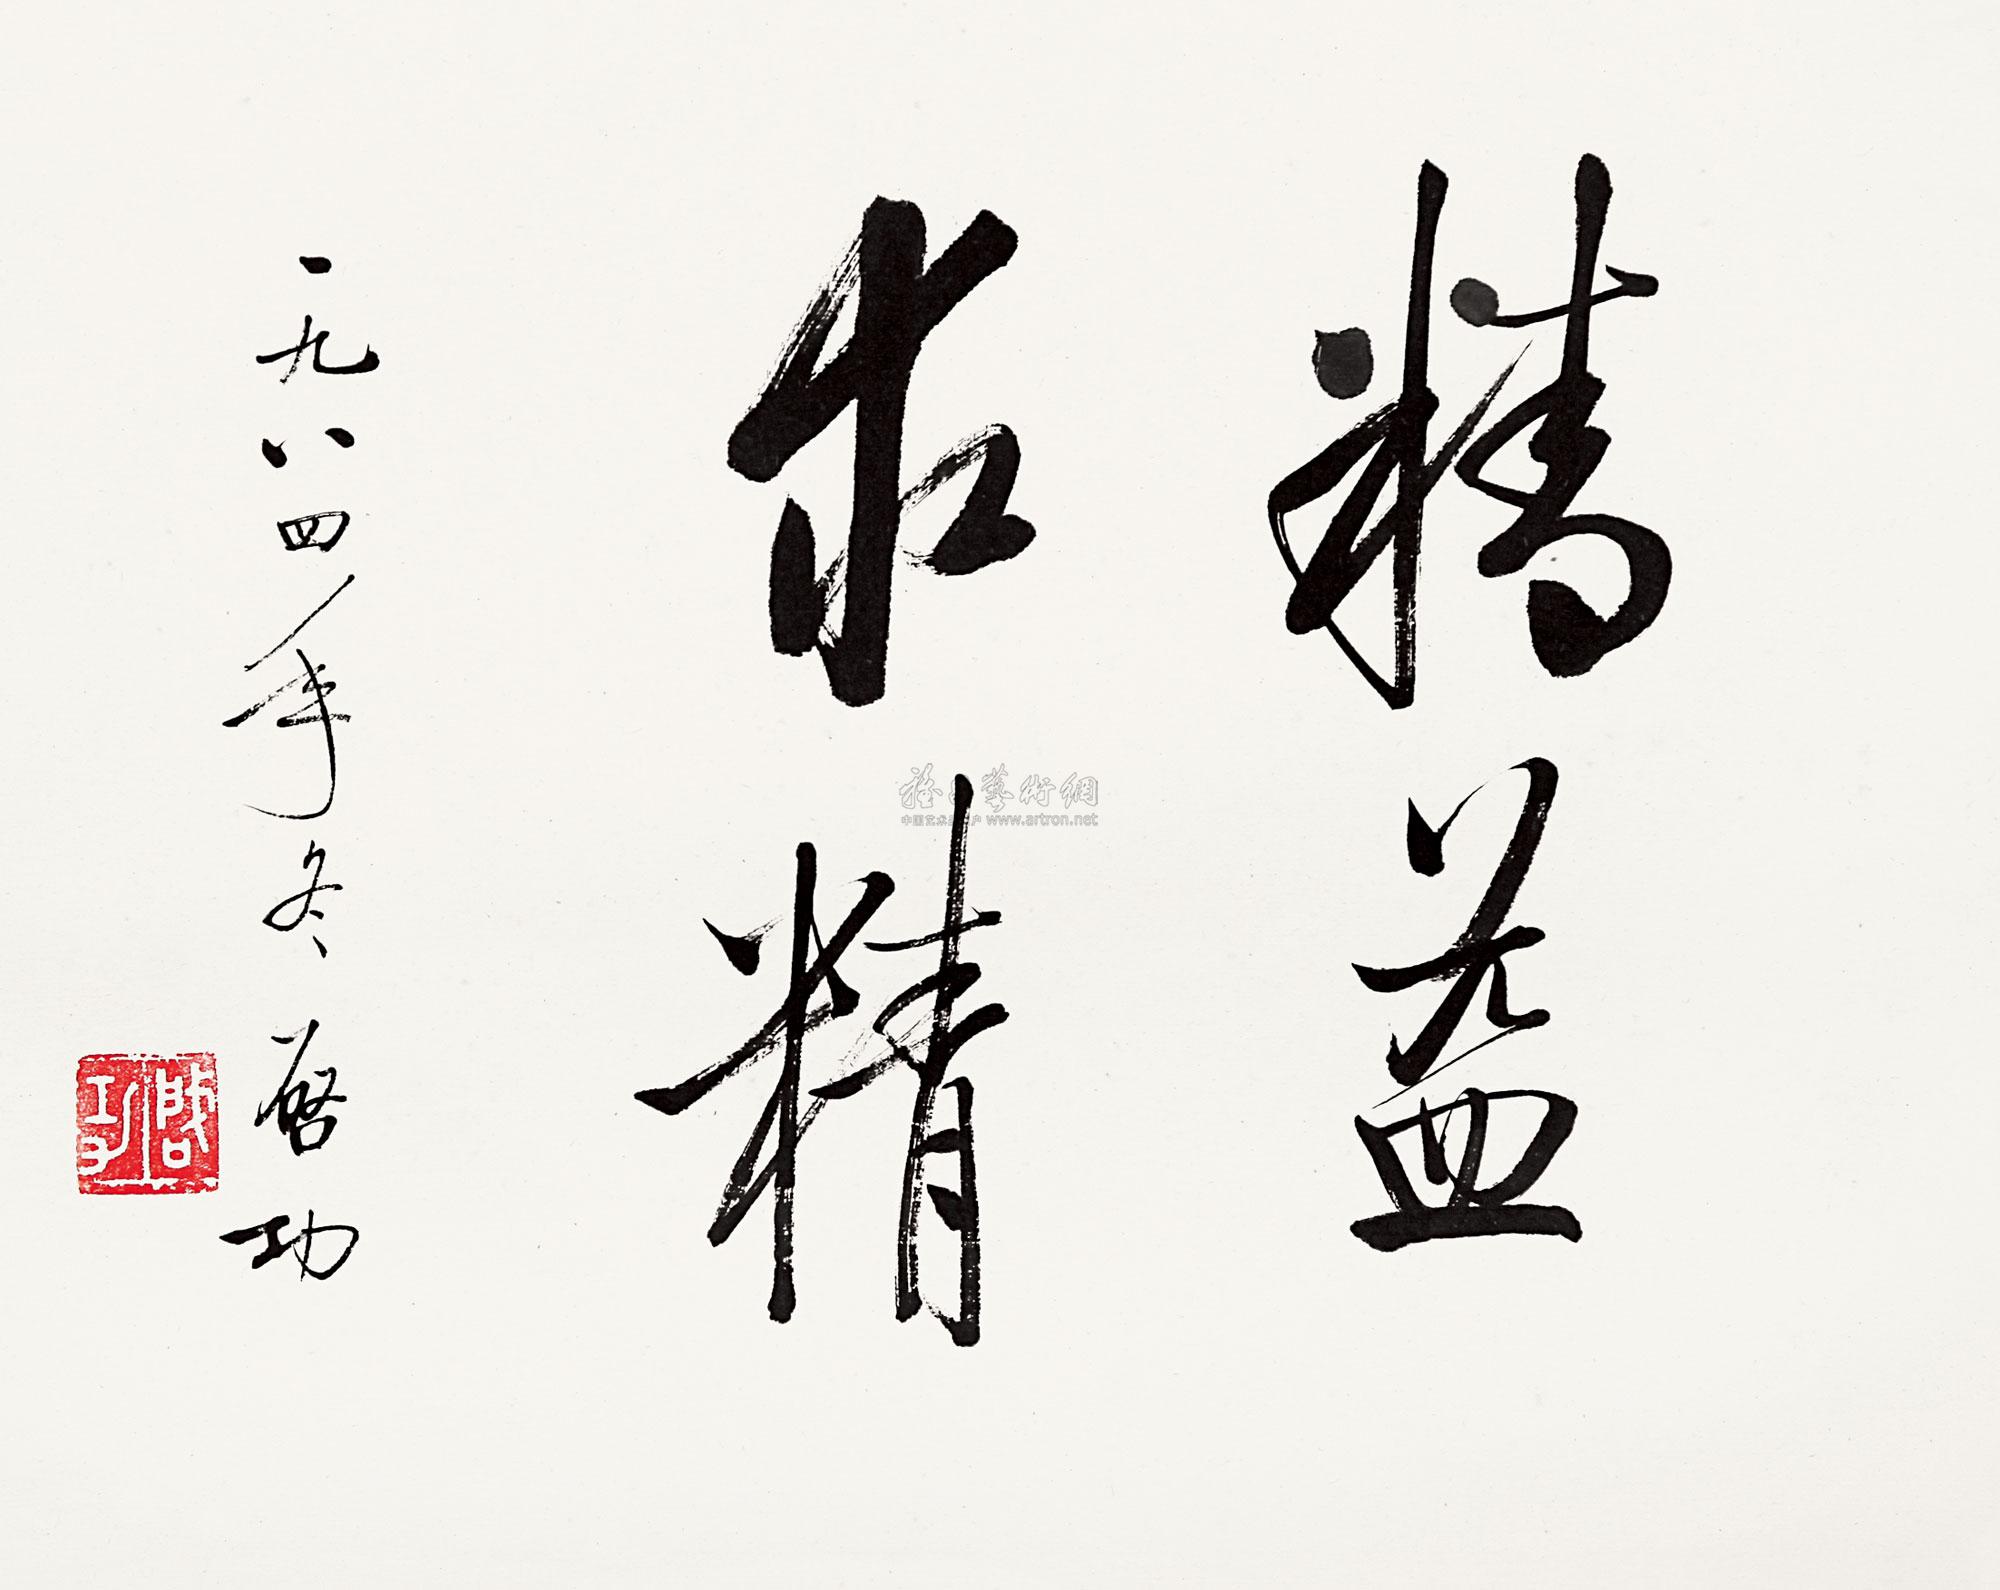 精益
求精
一九八四年冬 启功
启功
雅昌藝術網
中国艺术品门户 www.artron.net